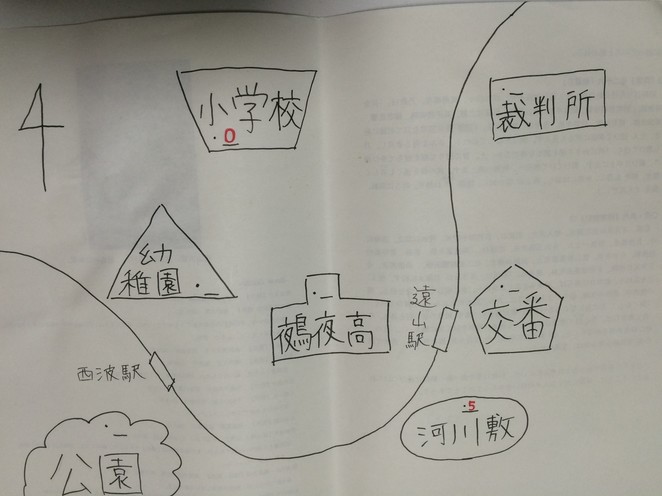 小学校
.0
裁判所
._
幼
稚園 ._
._
鵺夜高
遠山駅
._
交番
西波駅
.5
河川敷
._
公園